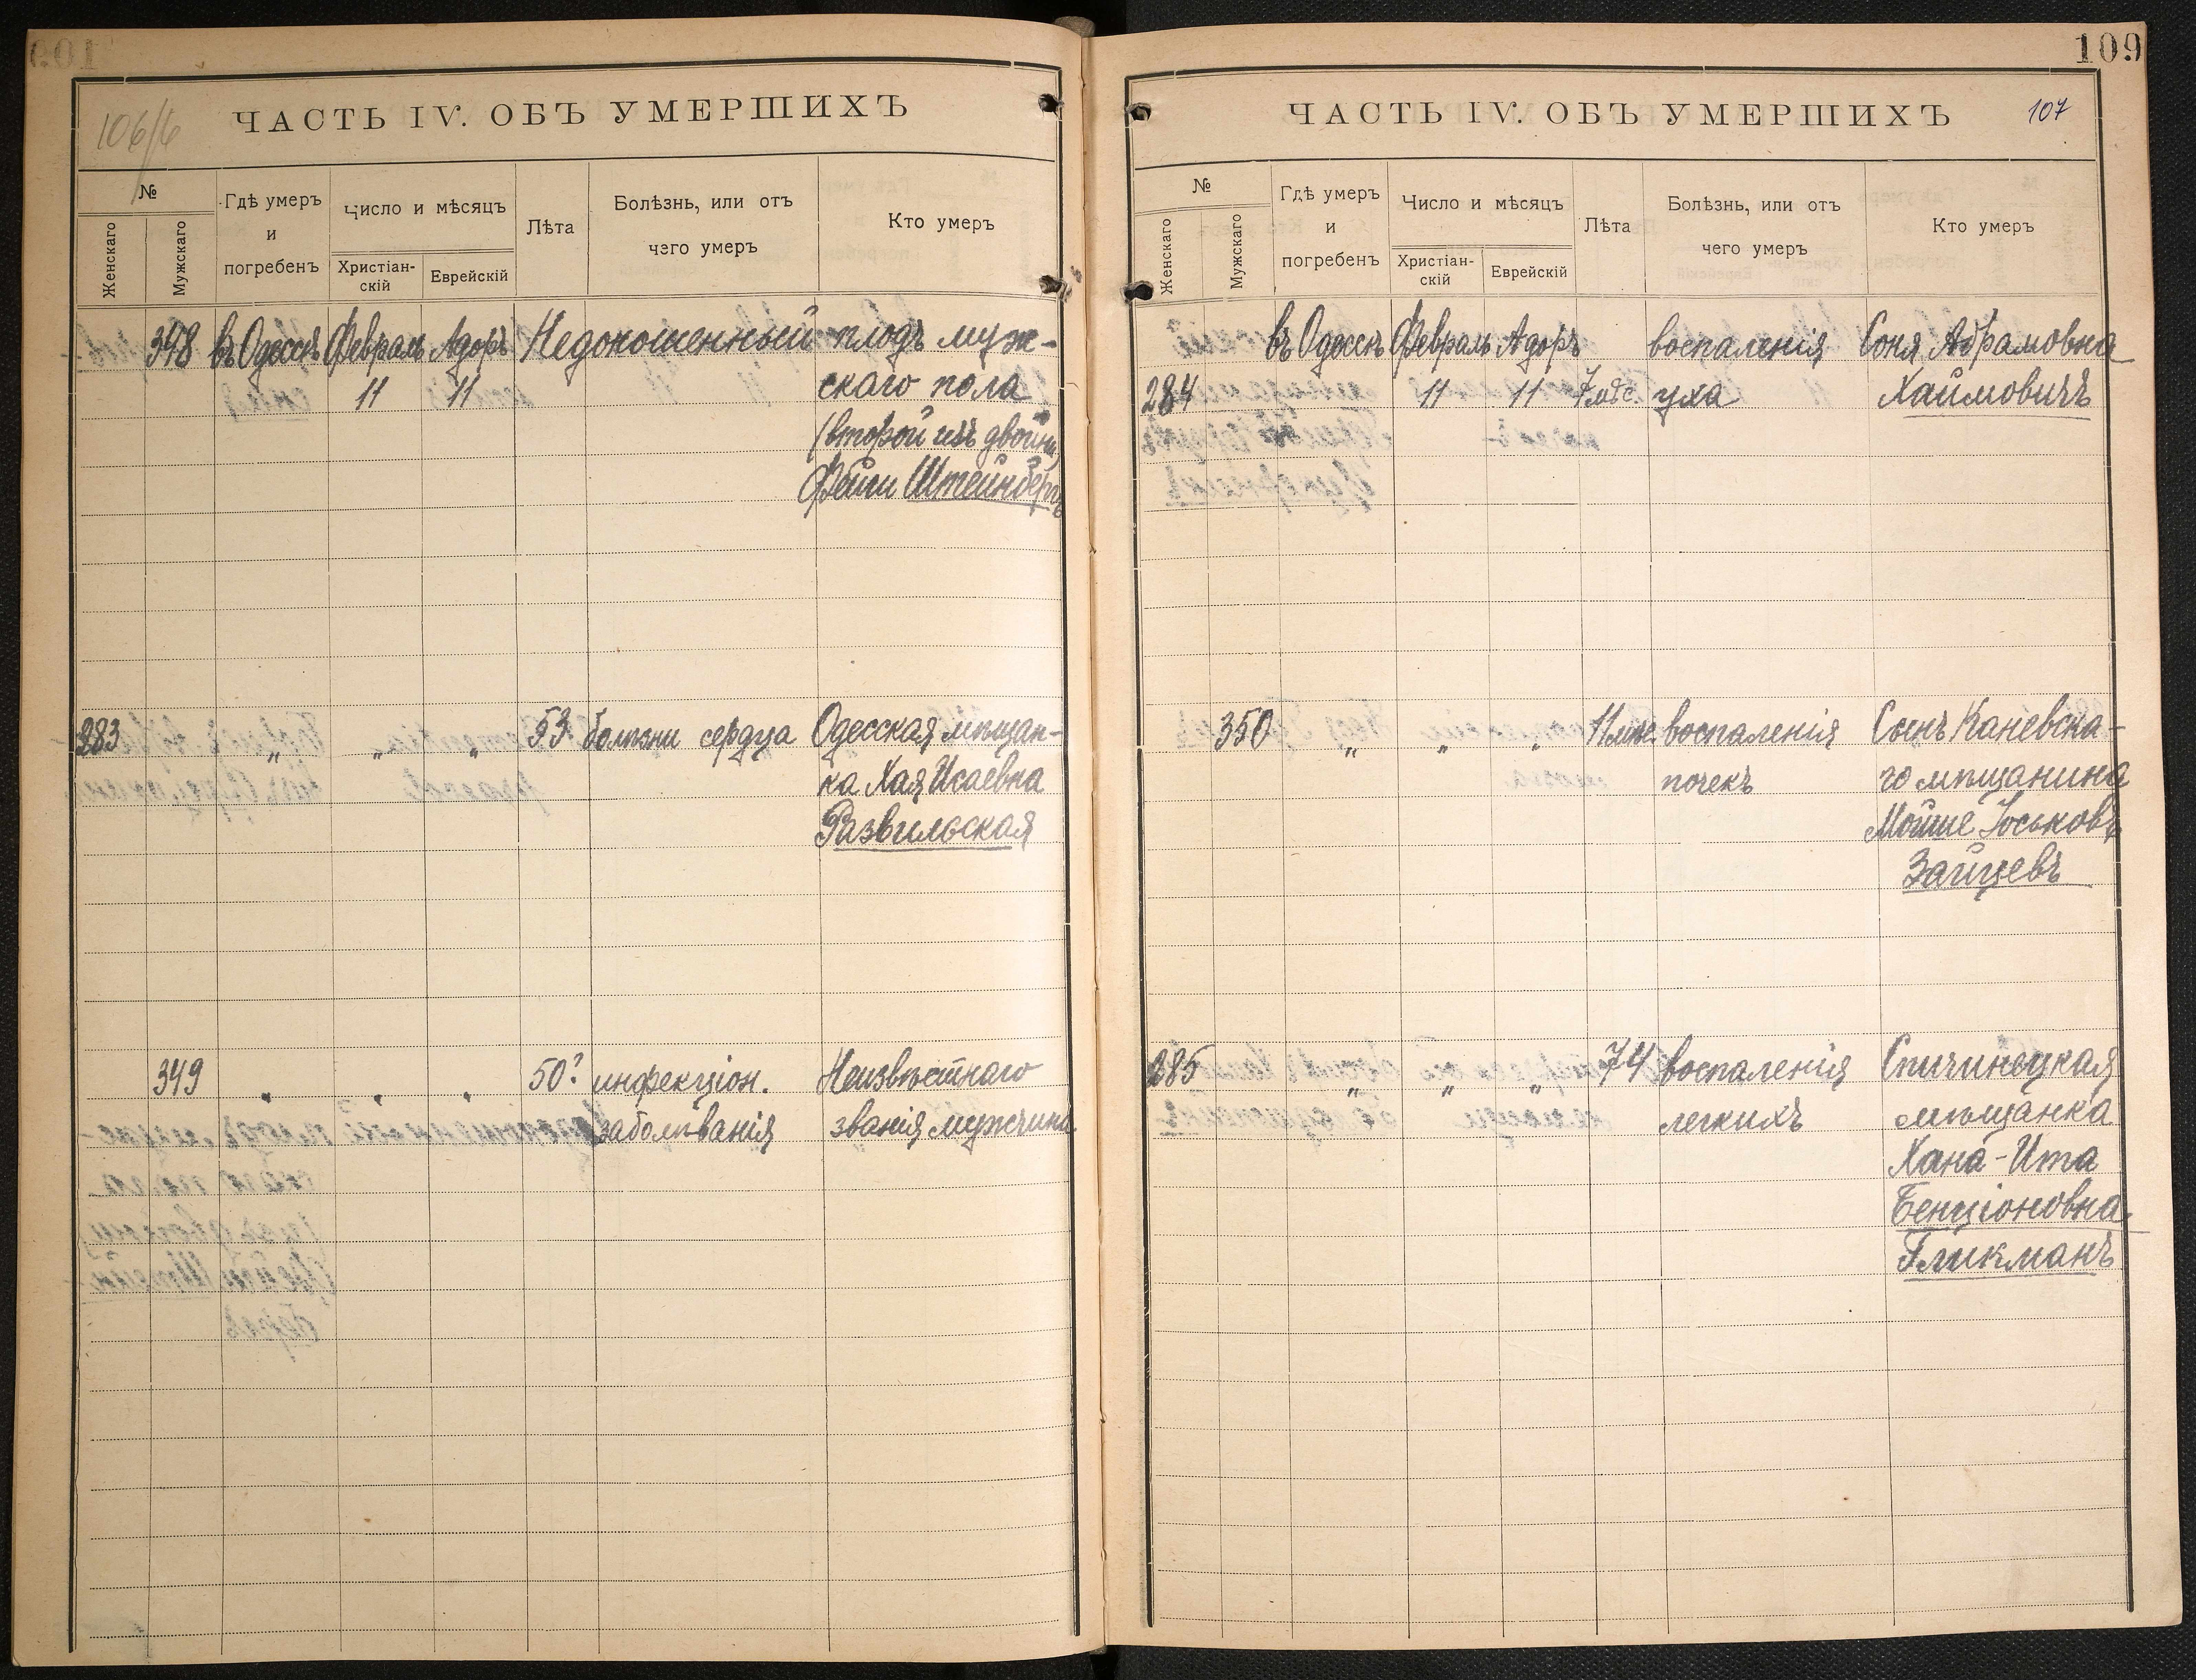 106/6
ЧАСТЬ IV. ОБЪ УМЕРШИХЪ
№
Женскаго
Мужскаго
Гдѣ умеръ
и
погребенъ
Число и мѣсяцъ
Христіан-
скій
Еврейскій
Лѣта
Болѣзнь, или отъ
чего умеръ
Кто умеръ
348 въ Одессѣ Февраль Адоръ Недоношенный плодъ муж-
11 11 скаго пола
(второй изъ двойни)
Фейги Штейнбергъ
283 „ „ „ 53 болѣзни сердца Одесская мѣщан-
ка Хая Исаевна
Развильская
349 „ „ „ 50? инфекціон. Неизвѣстнаго
заболѣванія званія мужчина
109
ЧАСТЬ IV. ОБЪ УМЕРШИХЪ
107
№
Женскаго
Мужскаго
Гдѣ умеръ
и
погребенъ
Число и мѣсяцъ
Христіан-
скій
Еврейскій
Лѣта
Болѣзнь, или отъ
чего умеръ
Кто умеръ
въ Одессѣ Февраль Адоръ воспаленія Соня Абрамовна
284 11 11 7 мѣс. уха Хаимовичъ
350 „ „ „ 11 мѣс. воспаленія Сынъ Каневска-
почекъ го мѣщанина
Мойше Іоськовъ
Зайцевъ
285 „ „ „ 74 воспаленія Спичинецкая
легкихъ мѣщанка
Хана-Ита
Бенціоновна
Гликманъ